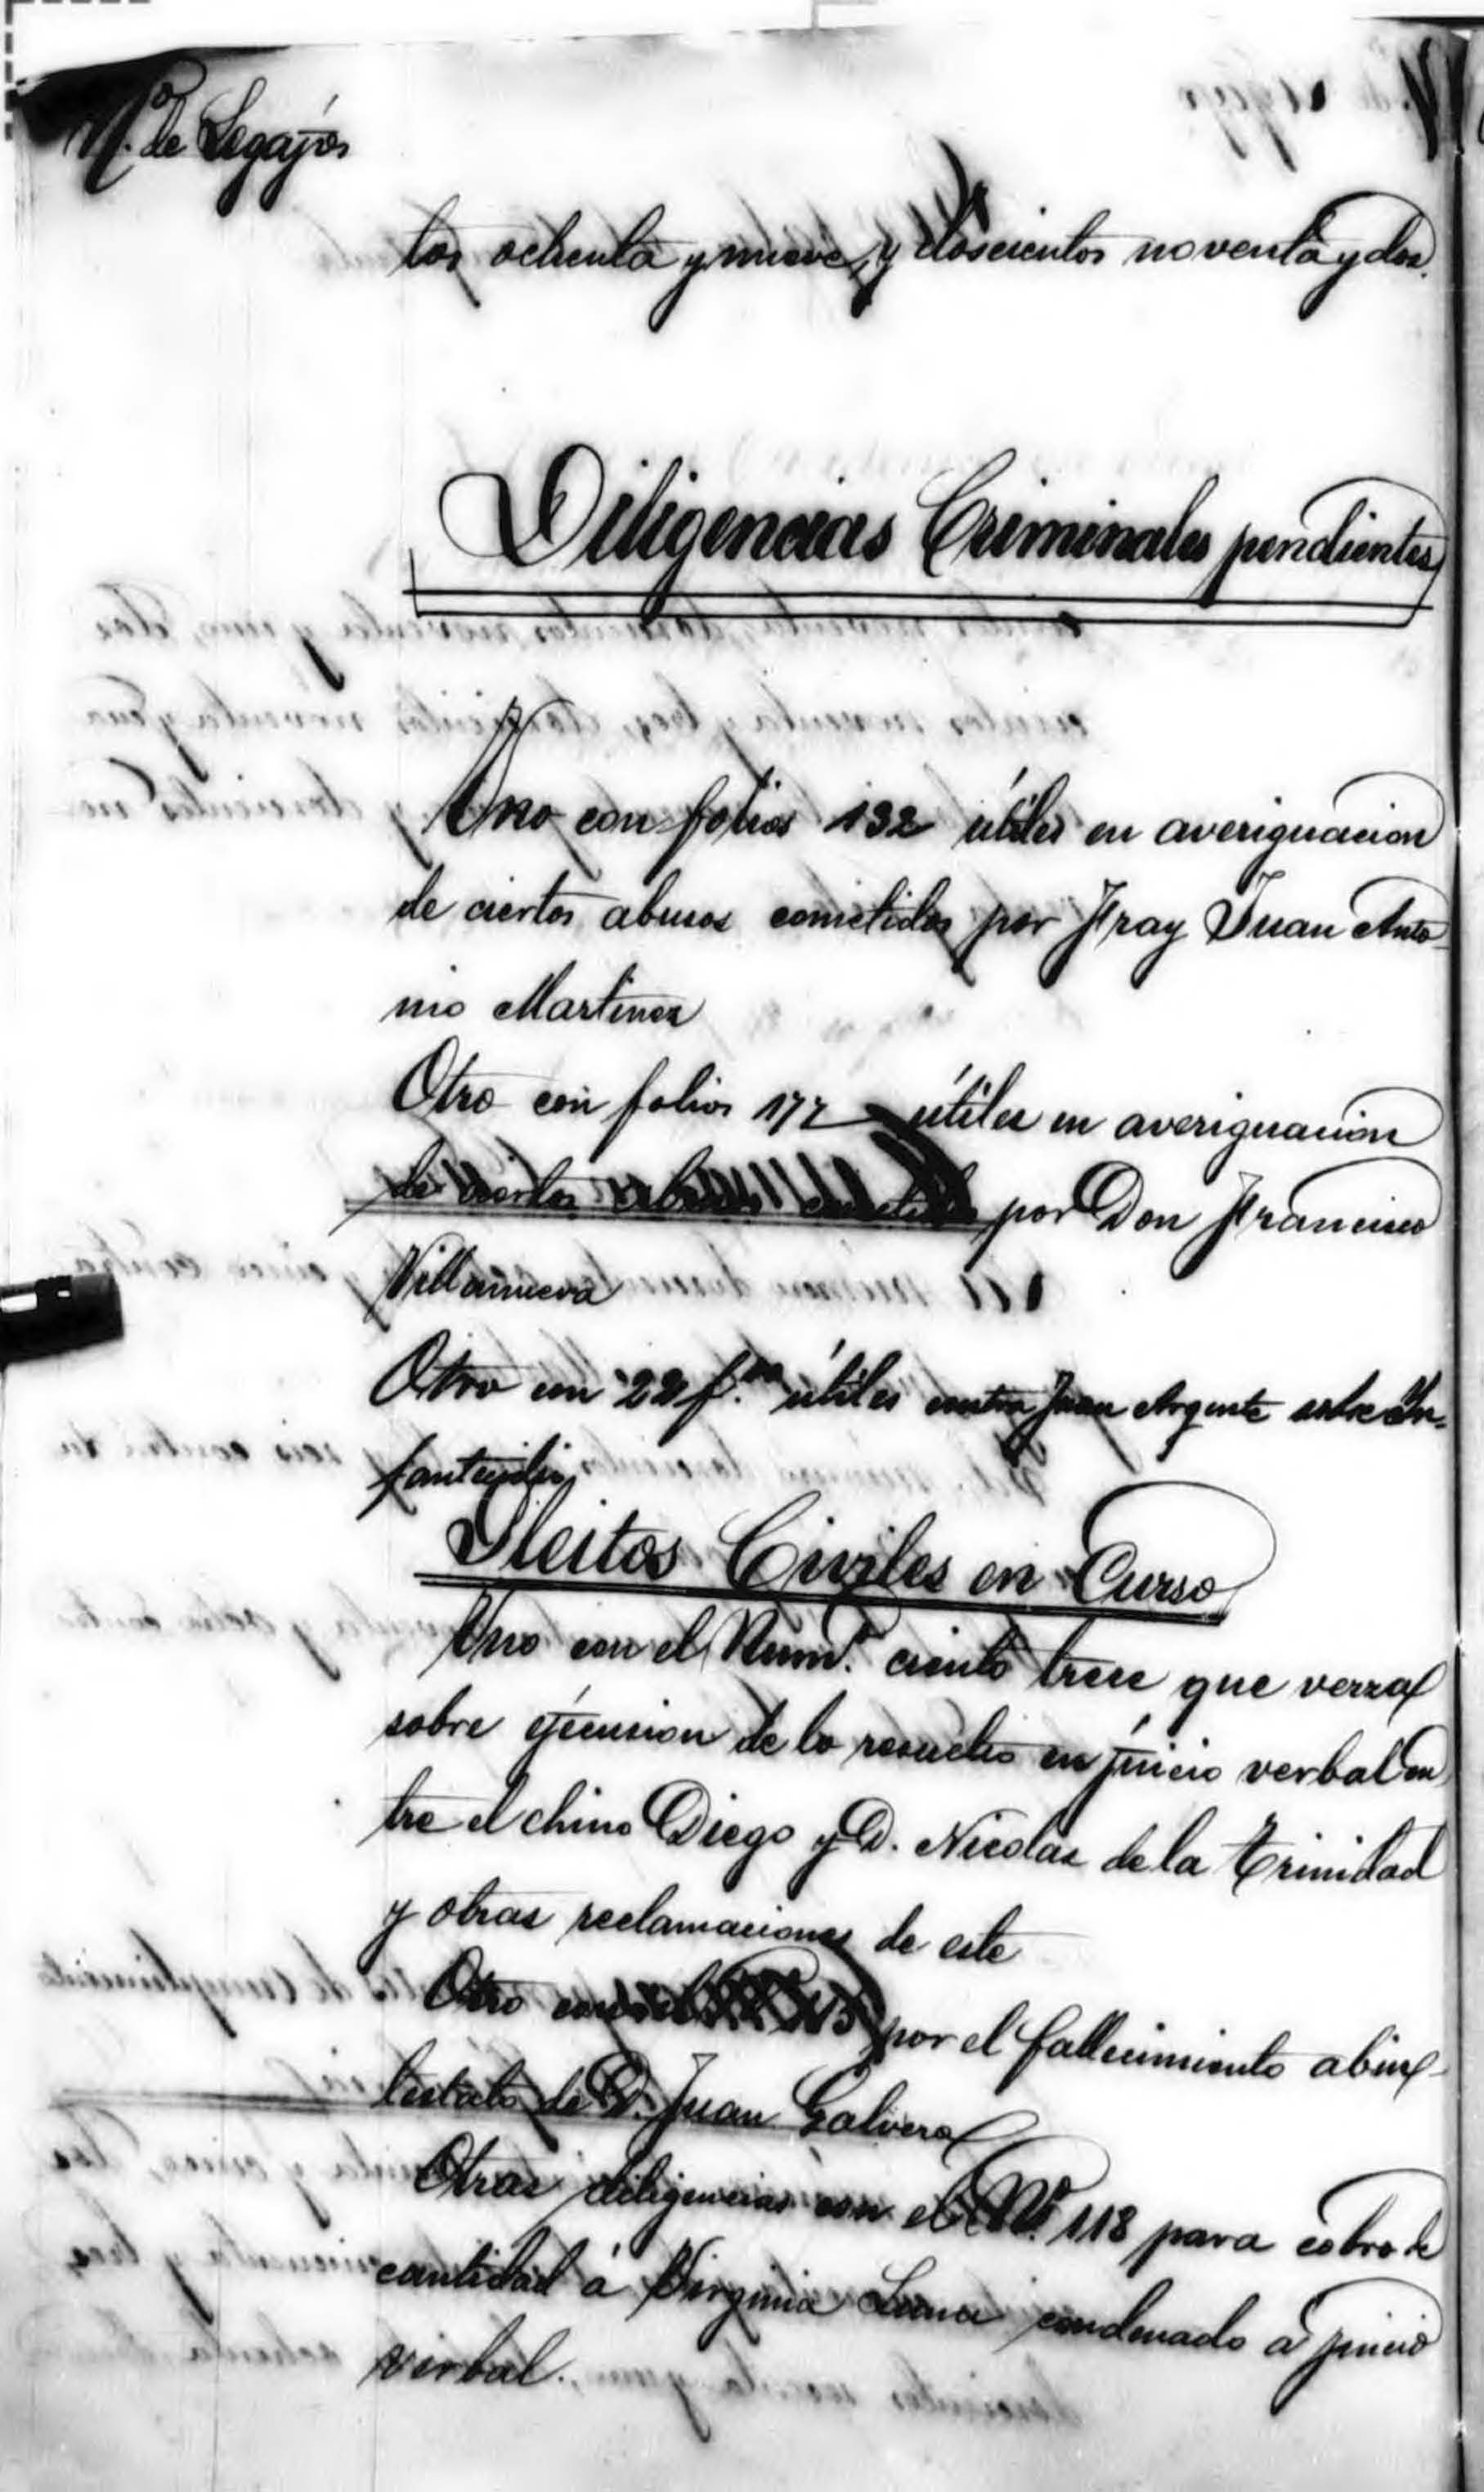 N.º de Legajos
tos ochenta y nueve, y doscientos noventa y dos.
Diligencias Criminales pendientes
Uno con folios 132 útiles en averiguacion
de ciertos abusos cometidos por Fray Juan Anto
nio Martinez
Otro con folios 177 útiles en averiguacion
de ciertos abusos cometidos por Don Francisco
Villanueva
Otro con 22 f.os útiles contra Juan Argente sobre In-
fanticidio
Pleitos Civiles en Curso
Uno con el Num.º ciento trece que versa
sobre ejecucion de lo resuelto en juicio verbal en
tre el chino Diego y D. Nicolas de la Trinidad
y otras reclamaciones de este
Otro con el por el fallecimiento abin-
testato de D. Juan Galvera
Otras diligencias con el N.º 118 para cobro de
cantidad á Virginia Luna condenado á juicio
verbal.